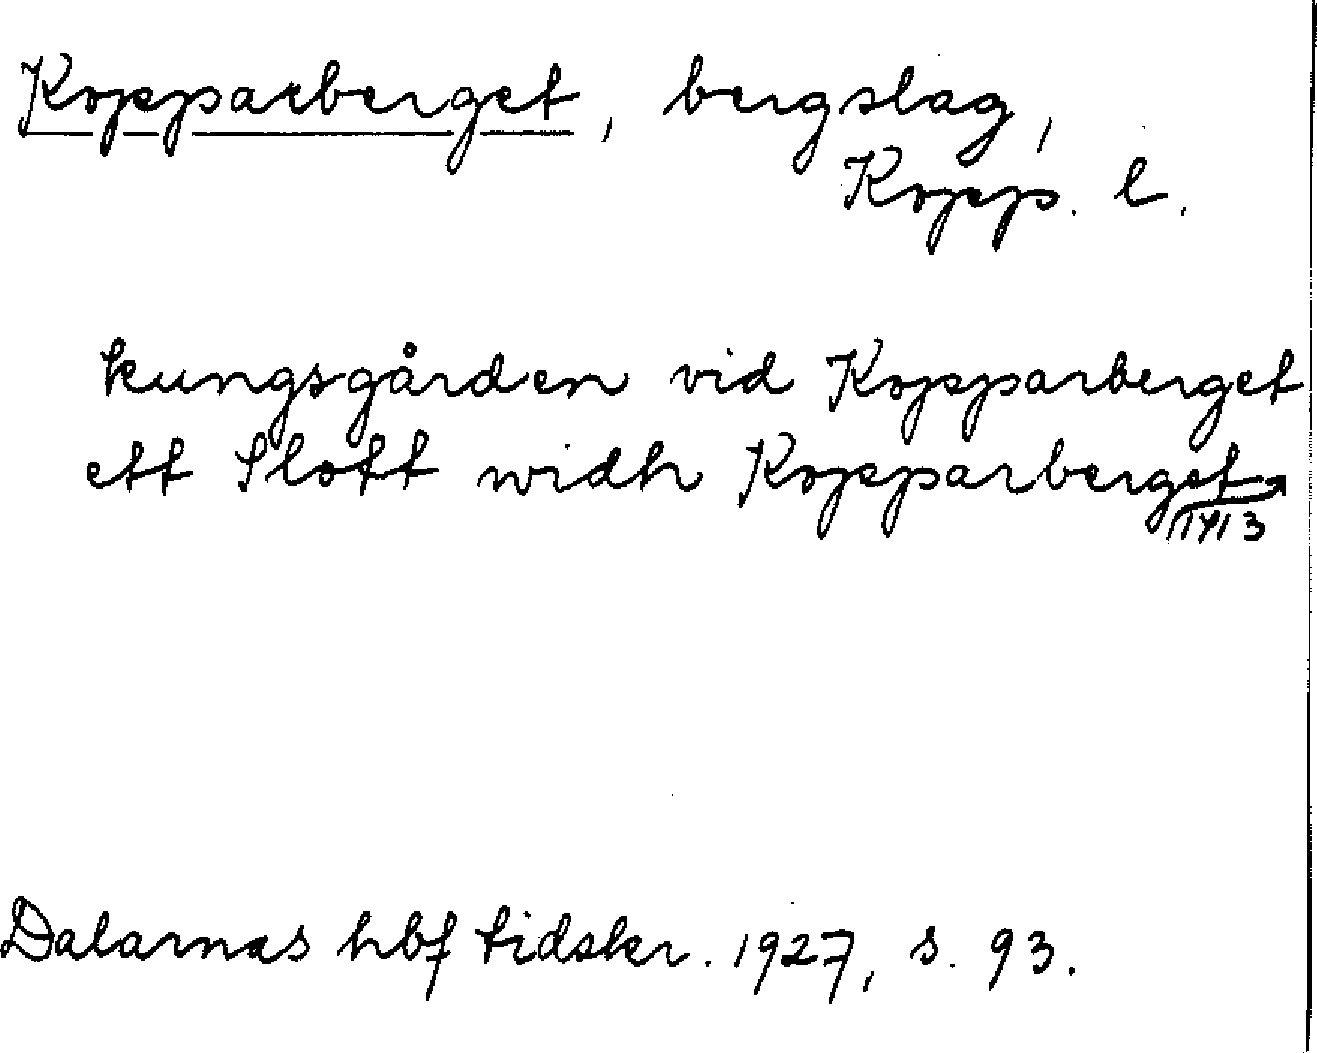 Kopparberget, bergslag,
Kopp. l.
kungsgården vid Kopparberget
ett Slott widh Kopparberget
Dalarnas hbf tidskr. 1927, s. 93.